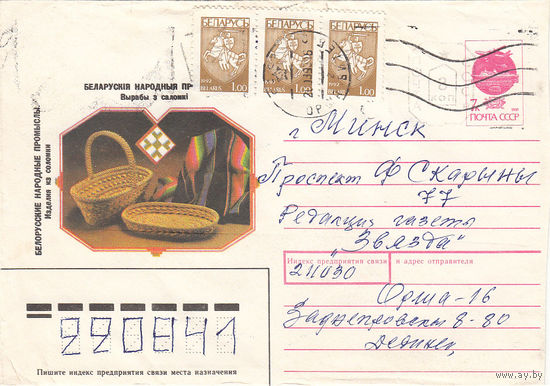 БЕЛАРУСЬ БЕЛАРУСЬ БЕЛАРУСЬ
1992 BELARUS 1.00 1992 BELARUS 1.00 1992 BELARUS 1.00
7к
ПОЧТА СССР
БЕЛАРУСКІЯ НАРОДНЫЯ ПР
Вырабы з саломкі
БЕЛОРУССКИЕ НАРОДНЫЕ ПРОМЫСЛЫ
Изделия из соломки
г Минск
Проспект Ф Скарыны
77
Редакция газеты
"Звязда"
Индекс предприятия связи и адрес отправителя
211030
Орша-16
Заднепровская 8-80
220841
Пишите индекс предприятия связи места назначения
www.ay.by